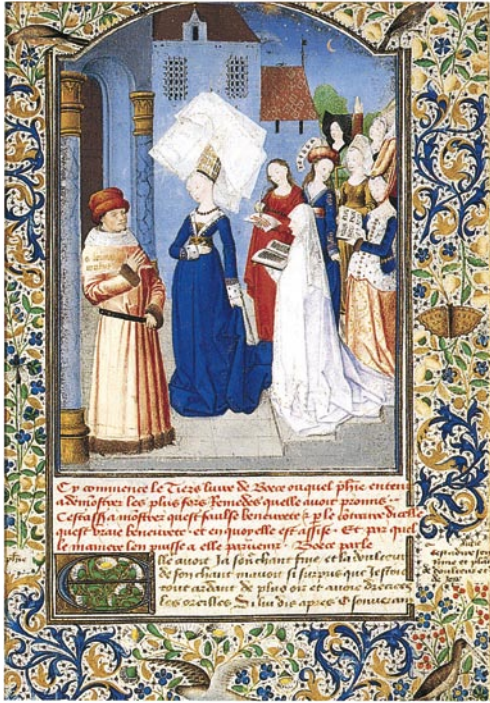 Cy commence le Tiers livre de Boece ouquel phie entent
a demostrer les plus fors Remedes quelle avoit promis
Cestassa mostrer quest faulse beneurete & p le contraire dicelle
quest vraie beneurete et en quoy elle est assise Et par quel
le maniere len puisse a elle parvenir Boece parle
Elle avoit Ja son chant fine et la doulceur
de son chant mavoit si surpris que Jestoie
tout ardant de plus oir et avoie drecees
les oreilles Si lui dis apres O souverain